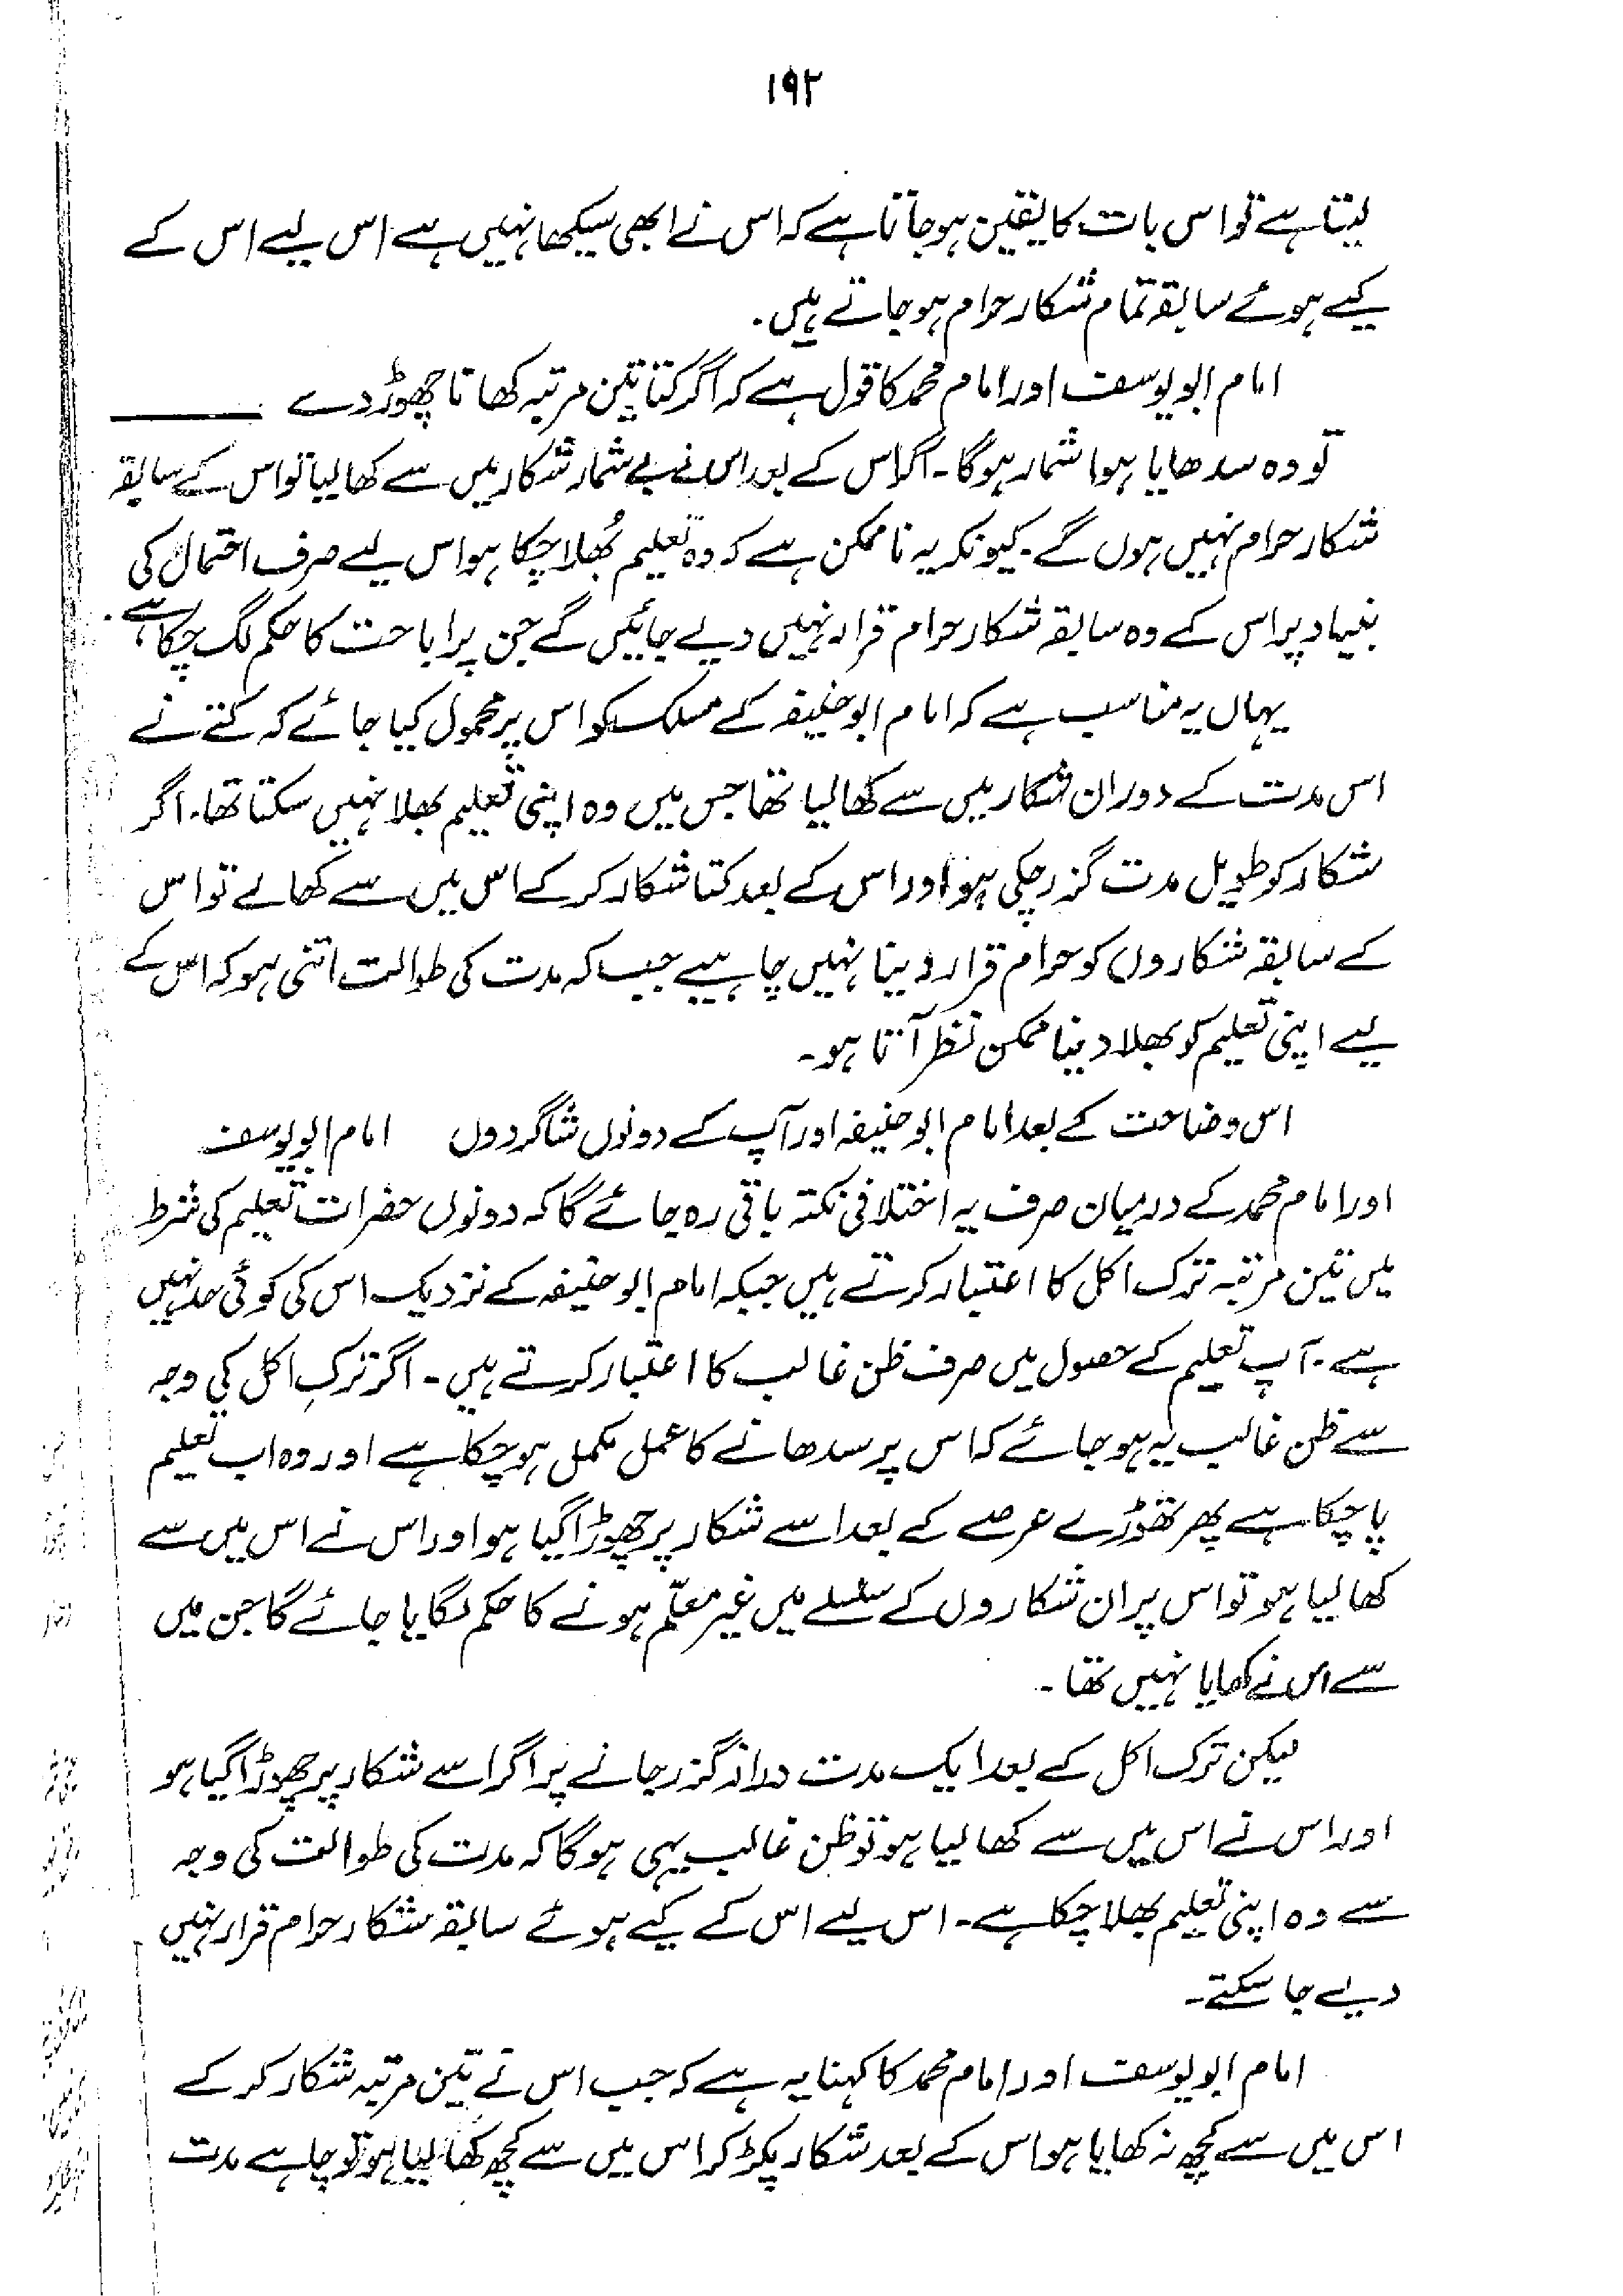 ۱۹۲
لیتا ہے تو اس بات کا یقین ہو جاتا ہے کہ اس نے ابھی سیکھا نہیں ہے اس لیے اس کے
کیے ہوئے سابقہ تمام شکار حرام ہو جاتے ہیں۔
امام ابو یوسف اور امام محمد کا قول ہے کہ اگر کتا تین مرتبہ کھانا چھوڑ دے ______
تو وہ سدھایا ہوا شمار ہوگا۔ اگر اس کے بعد اس نے بے شمار شکار میں سے کھا لیا تو اس کے سابقہ
شکار حرام نہیں ہوں گے۔ کیونکہ یہ ناممکن ہے کہ وہ تعلیم بُھلا چکا ہو اس لیے صرف احتمال کی
بنیاد پر اس کے وہ سابقہ شکار حرام قرار نہیں دیے جائیں گے جن پر اباحت کا حکم لگ چکا ہے۔
یہاں یہ مناسب ہے کہ امام ابو حنیفہ کے مسلک کو اس پر محمول کیا جائے کہ کتے نے
اس مدت کے دوران شکار میں سے کھا لیا تھا جس میں وہ اپنی تعلیم بھلا نہیں سکتا تھا۔ اگر
شکار کو طویل مدت گزر چکی ہو اور اس کے بعد کتا شکار کر کے اس میں سے کھالے تو اس
کے سابقہ شکاروں کو حرام قرار دینا نہیں چاہیے جب کہ مدت کی طوالت اتنی ہو کہ اس کے
لیے اپنی تعلیم کو بھلا دینا ممکن نظر آتا ہو۔
اس وضاحت کے بعد امام ابو حنیفہ اور آپ کے دونوں شاگردوں امام ابو یوسف
اور امام محمد کے درمیان صرف یہ اختلافی نکتہ باقی رہ جائے گا کہ دونوں حضرات تعلیم کی شرط
میں تین مرتبہ ترک اکل کا اعتبار کرتے ہیں جبکہ امام ابو حنیفہ کے نزدیک اس کی کوئی حد نہیں
ہے۔ آپ تعلیم کے حصول میں صرف ظن غالب کا اعتبار کرتے ہیں۔ اگر ترکِ اکل کی وجہ
سے ظن غالب یہ ہو جائے کہ اس پر سدھانے کا عمل مکمل ہو چکا ہے اور وہ اب تعلیم
پا چکا ہے پھر تھوڑے عرصے کے بعد اسے شکار پر چھوڑا گیا ہو اور اس نے اس میں سے
کھا لیا ہو تو اس پر ان شکاروں کے سلسلے میں غیر معلّم ہونے کا حکم لگایا جائے گا جن میں
سے اس نے کھایا نہیں تھا۔
لیکن ترک اکل کے بعد ایک مدت دراز گزر جانے پر اگر اسے شکار پر چھوڑا گیا ہو
اور اس نے اس میں سے کھا لیا ہو تو ظن غالب یہی ہوگا کہ مدت کی طوالت کی وجہ
سے وہ اپنی تعلیم بھلا چکا ہے۔ اس لیے اس کے کیے ہوئے سابقہ شکار حرام قرار نہیں
دیے جا سکتے۔
امام ابو یوسف اور امام محمد کا کہنا یہ ہے کہ جب اس نے تین مرتبہ شکار کر کے
اس میں سے کچھ نہ کھایا ہو اس کے بعد شکار پکڑ کر اس میں سے کچھ کھا لیا ہو تو چاہے مدت